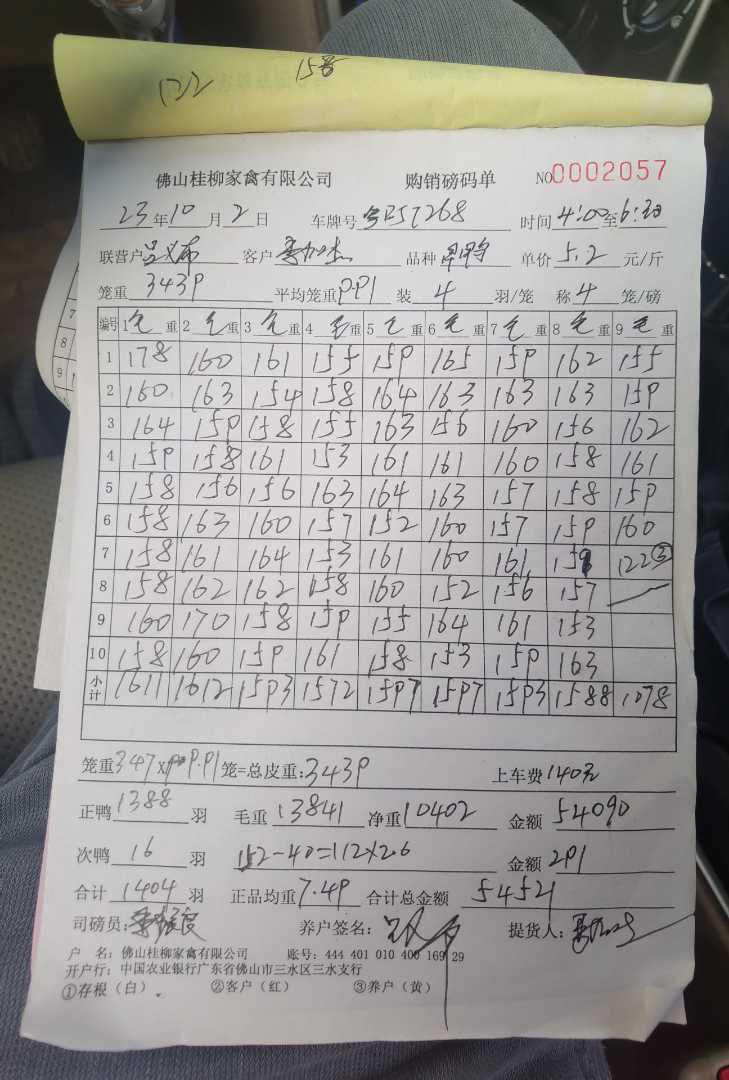 15号
122
佛山桂柳家禽有限公司 购销磅码单 NO0002057
23年10月2日 车牌号 57268 时间4:00至6:30
联营户吕义布 客户 品种 单价5.2元/斤
笼重3439 平均笼重9.91 装4羽/笼 称4笼/磅
编号 1毛重 2毛重 3毛重 4毛重 5毛重 6毛重 7毛重 8毛重 9毛重
1 178 160 161 155 159 165 159 162 155
2 160 163 154 158 164 163 163 163 159
3 164 159 158 155 163 156 160 156 162
4 159 158 161 153 161 161 160 158 161
5 158 156 156 163 164 163 157 158 159
6 158 163 160 157 152 160 157 159 160
7 158 161 164 153 161 160 161 159 122③
8 158 162 162 158 160 152 156 157
9 160 170 158 159 155 164 161 153
10 158 160 159 161 158 153 159 163
小计 1611 1612 1593 1572 1597 1597 1593 1588 1078
笼重347×9.91笼=总皮重:3439 上车费140元
正鸭1388羽 毛重13841 净重10402 金额54090
次鸭16羽 152-40=112×2.6 金额291
合计1404羽 正品均重7.49 合计总金额54521
司磅员: 养户签名: 提货人:
户 名:佛山桂柳家禽有限公司 账号:444 401 010 400 169 29
开户行:中国农业银行广东省佛山市三水区三水支行
①存根(白) ②客户(红) ③养户(黄)